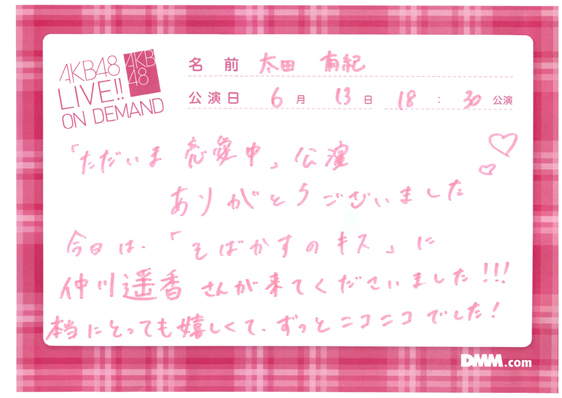 AKB48
LIVE!!
ON DEMAND
AKB
48
名前 太田 有紀
公演日 6月 13日 18 : 30 公演
「ただいま 恋愛中」公演
ありがとうございました
今日は、「そばかすのキス」に
仲川遥香さんが来てくださいました!!!
本当にとっても嬉しくて、ずっとニコニコでした!
DMM.com